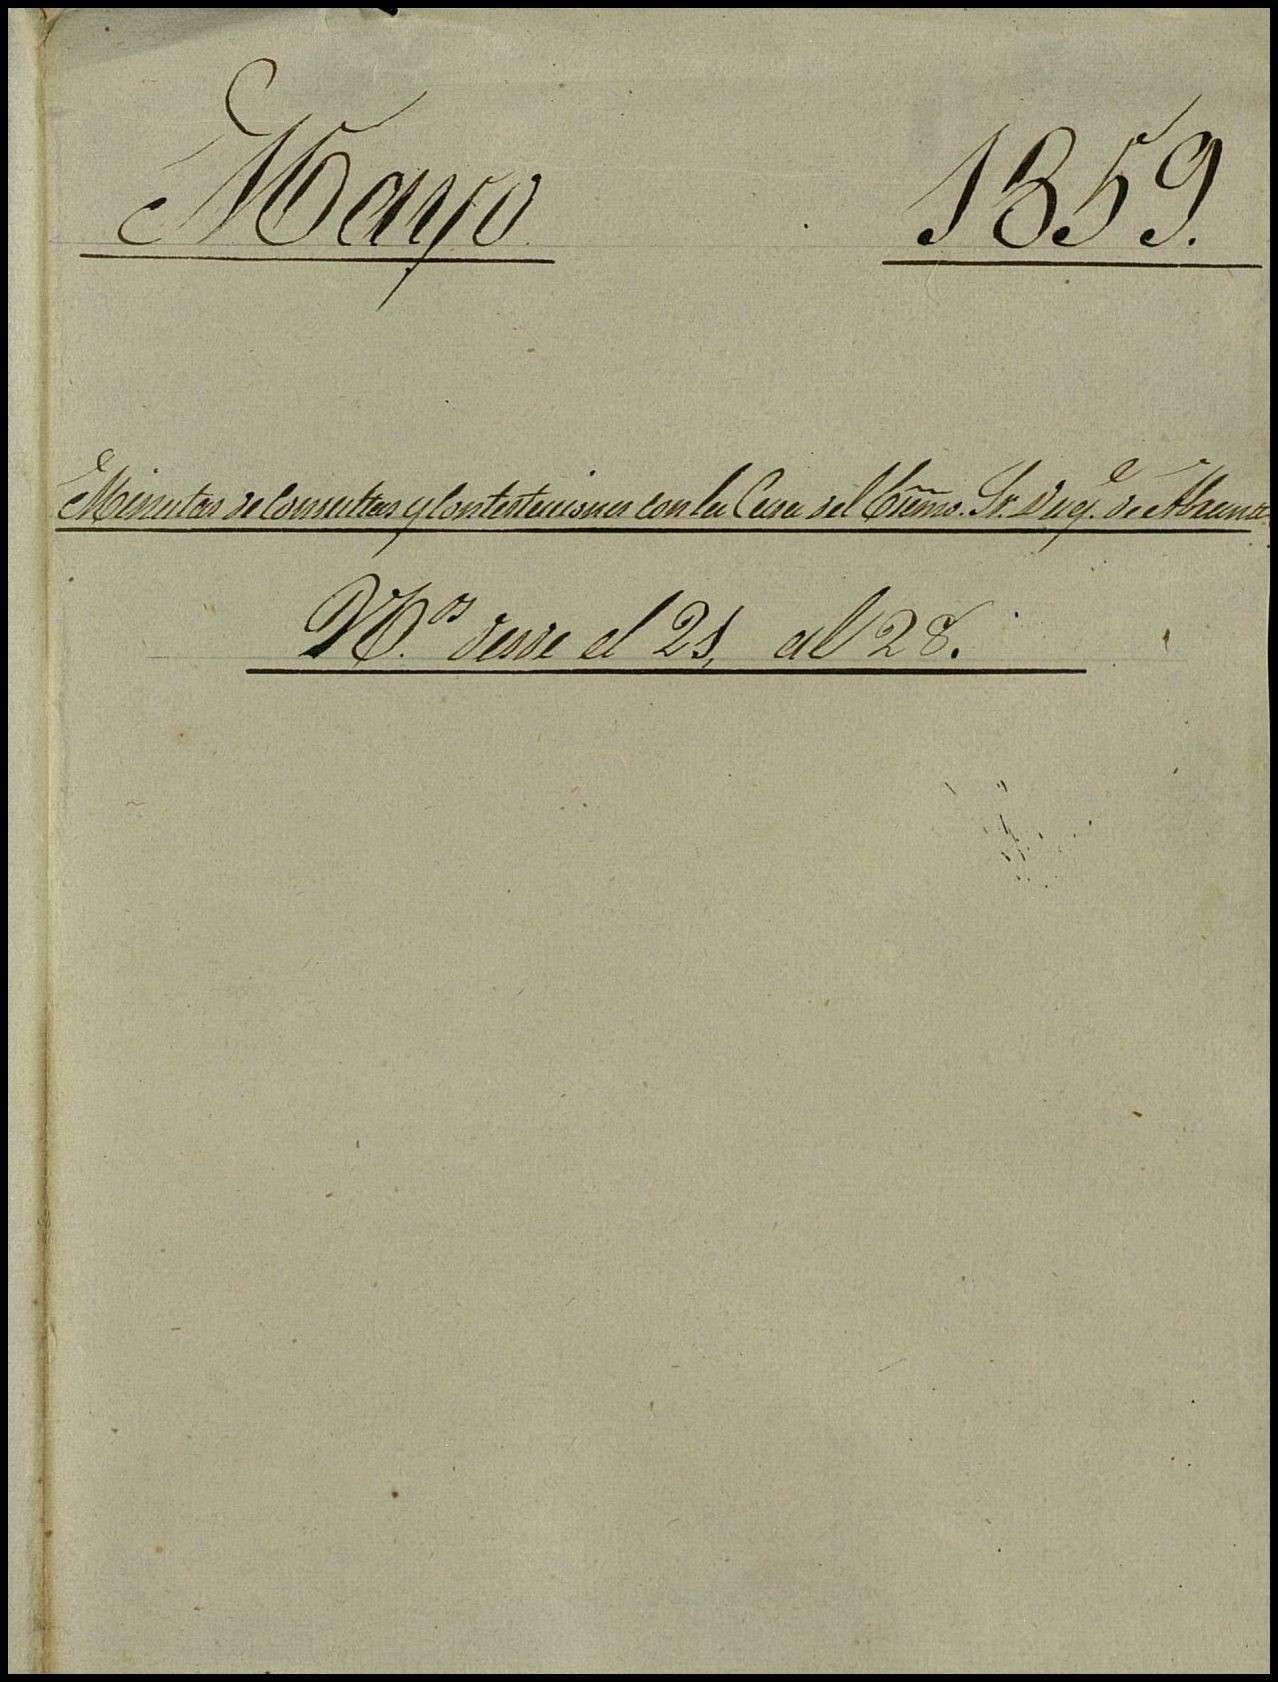 Mayo 1859.
Minutas de Consultas y Contestaciones con la Casa del Excmo. Sr. Duqe. de Abrantes
Nos. desde el 21, al 28.